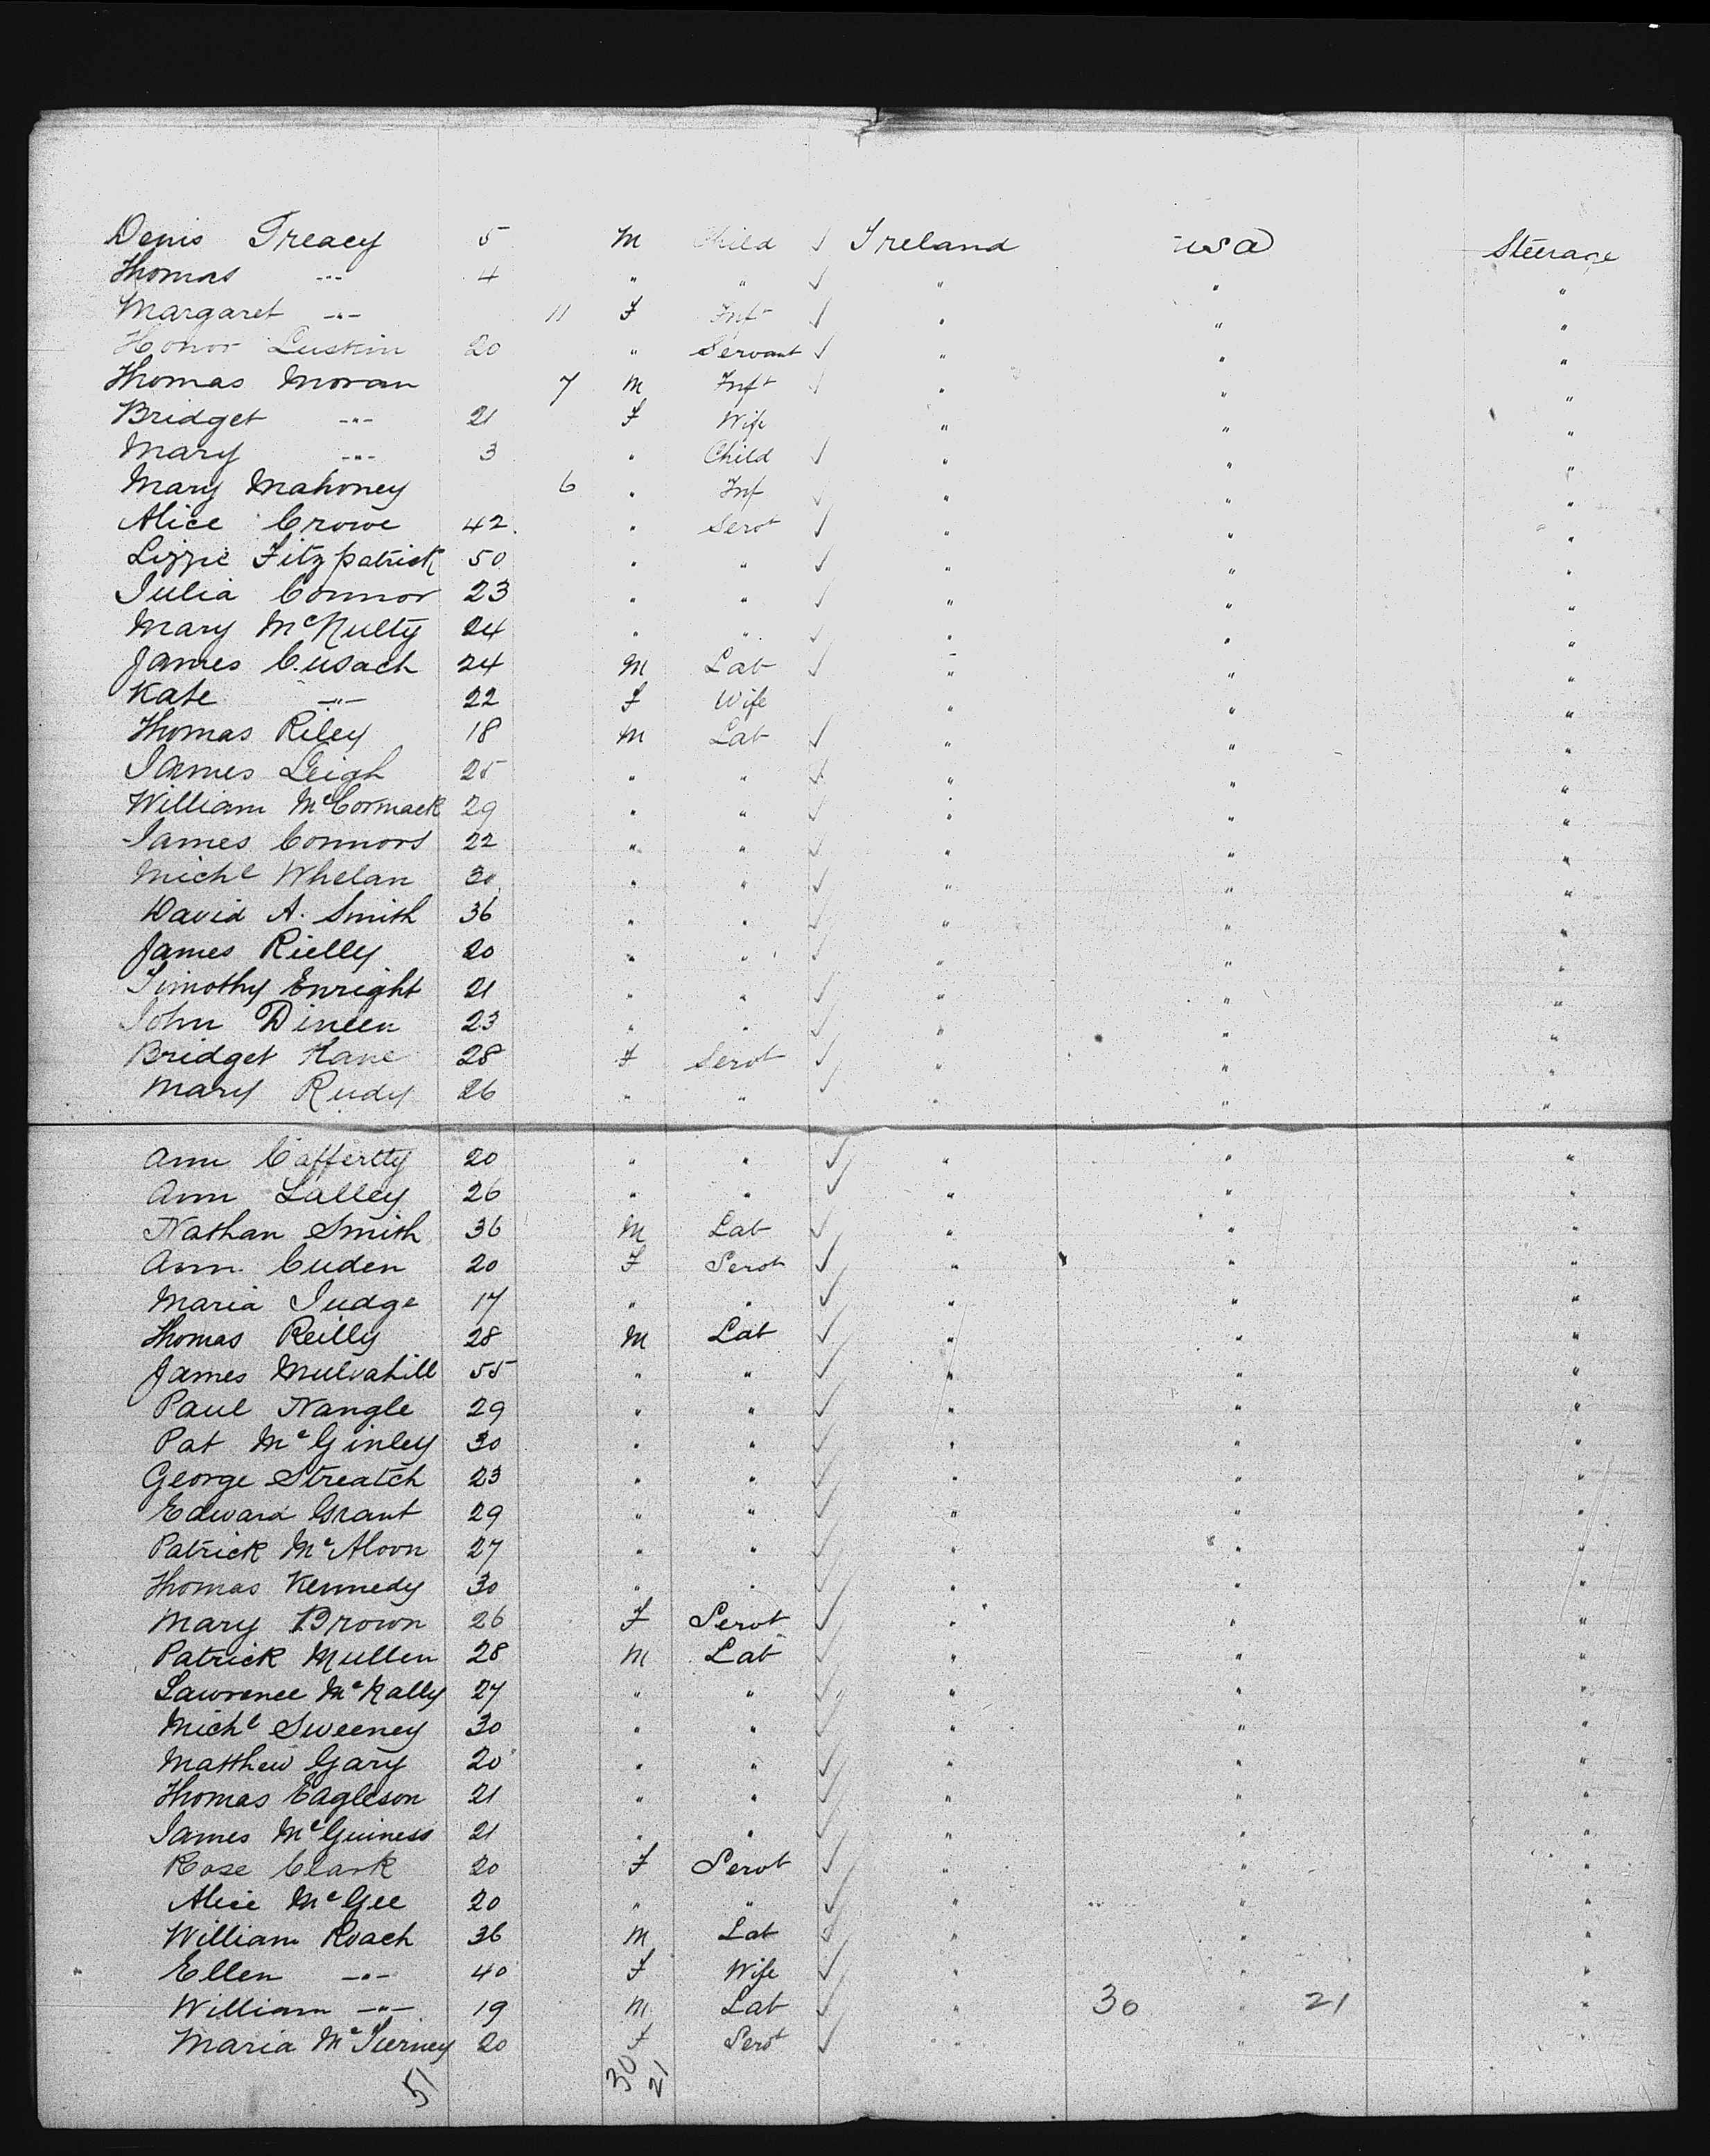 Denis Treacy 5 M Child ✓ Ireland USA Steerage
Thomas -"- 4 " " ✓ " " "
Margaret -"- 11 F Inft ✓ " " "
Honor Luskin 20 " Servant ✓ " " "
Thomas Moran 7 M Inft ✓ " " "
Bridget -"- 21 F Wife " " "
Mary -"- 3 " Child ✓ " " "
Mary Mahoney 6 " Inf ✓ " " "
Alice Crowe 42 " Servt ✓ " " "
Lizzie Fitzpatrick 50 " " ✓ " " "
Julia Connor 23 " " ✓ " " "
Mary McNulty 24 " " ✓ " " "
James Cusach 24 M Lab ✓ " " "
Kate -"- 22 F Wife " " "
Thomas Riley 18 M Lab ✓ " " "
James Leigh 25 " " ✓ " " "
William McCormack 29 " " ✓ " " "
James Connors 22 " " ✓ " " "
Michl Whelan 30 " " ✓ " " "
David A. Smith 36 " " ✓ " " "
James Rielly 20 " " ✓ " " "
Timothy Enright 21 " " ✓ " " "
John Dineen 23 " " ✓ " " "
Bridget Kane 28 F Servt ✓ " " "
Mary Rudy 26 " " ✓ " " "
Ann Caffertty 20 " " ✓ " " "
Ann Lalley 26 " " ✓ " " "
Nathan Smith 36 M Lab ✓ " " "
Ann Cuden 20 F Servt ✓ " " "
Maria Judge 17 " " ✓ " " "
Thomas Reilly 28 M Lab ✓ " " "
James Mulvahill 55 " " ✓ " " "
Paul Nangle 29 " " ✓ " " "
Pat McGinley 30 " " ✓ " " "
George Streatch 23 " " ✓ " " "
Edward Grant 29 " " ✓ " " "
Patrick McAloon 27 " " ✓ " " "
Thomas Kennedy 30 " " ✓ " " "
Mary Brown 26 F Servt ✓ " " "
Patrick Mullen 28 M Lab ✓ " " "
Lawrence McNally 27 " " ✓ " " "
Michl Sweeney 30 " " ✓ " " "
Matthew Gary 20 " " ✓ " " "
Thomas Eagleson 21 " " ✓ " " "
James McGuiness 21 " " ✓ " " "
Rose Clark 20 F Servt ✓ " " "
Alice McGee 20 " " ✓ " " "
William Roach 36 M Lab ✓ " " "
Ellen -"- 40 F Wife ✓ " " "
William -"- 19 M Lab ✓ " 30 " 21 "
Maria McTierney 20 F Servt ✓ " " "
51 30 21